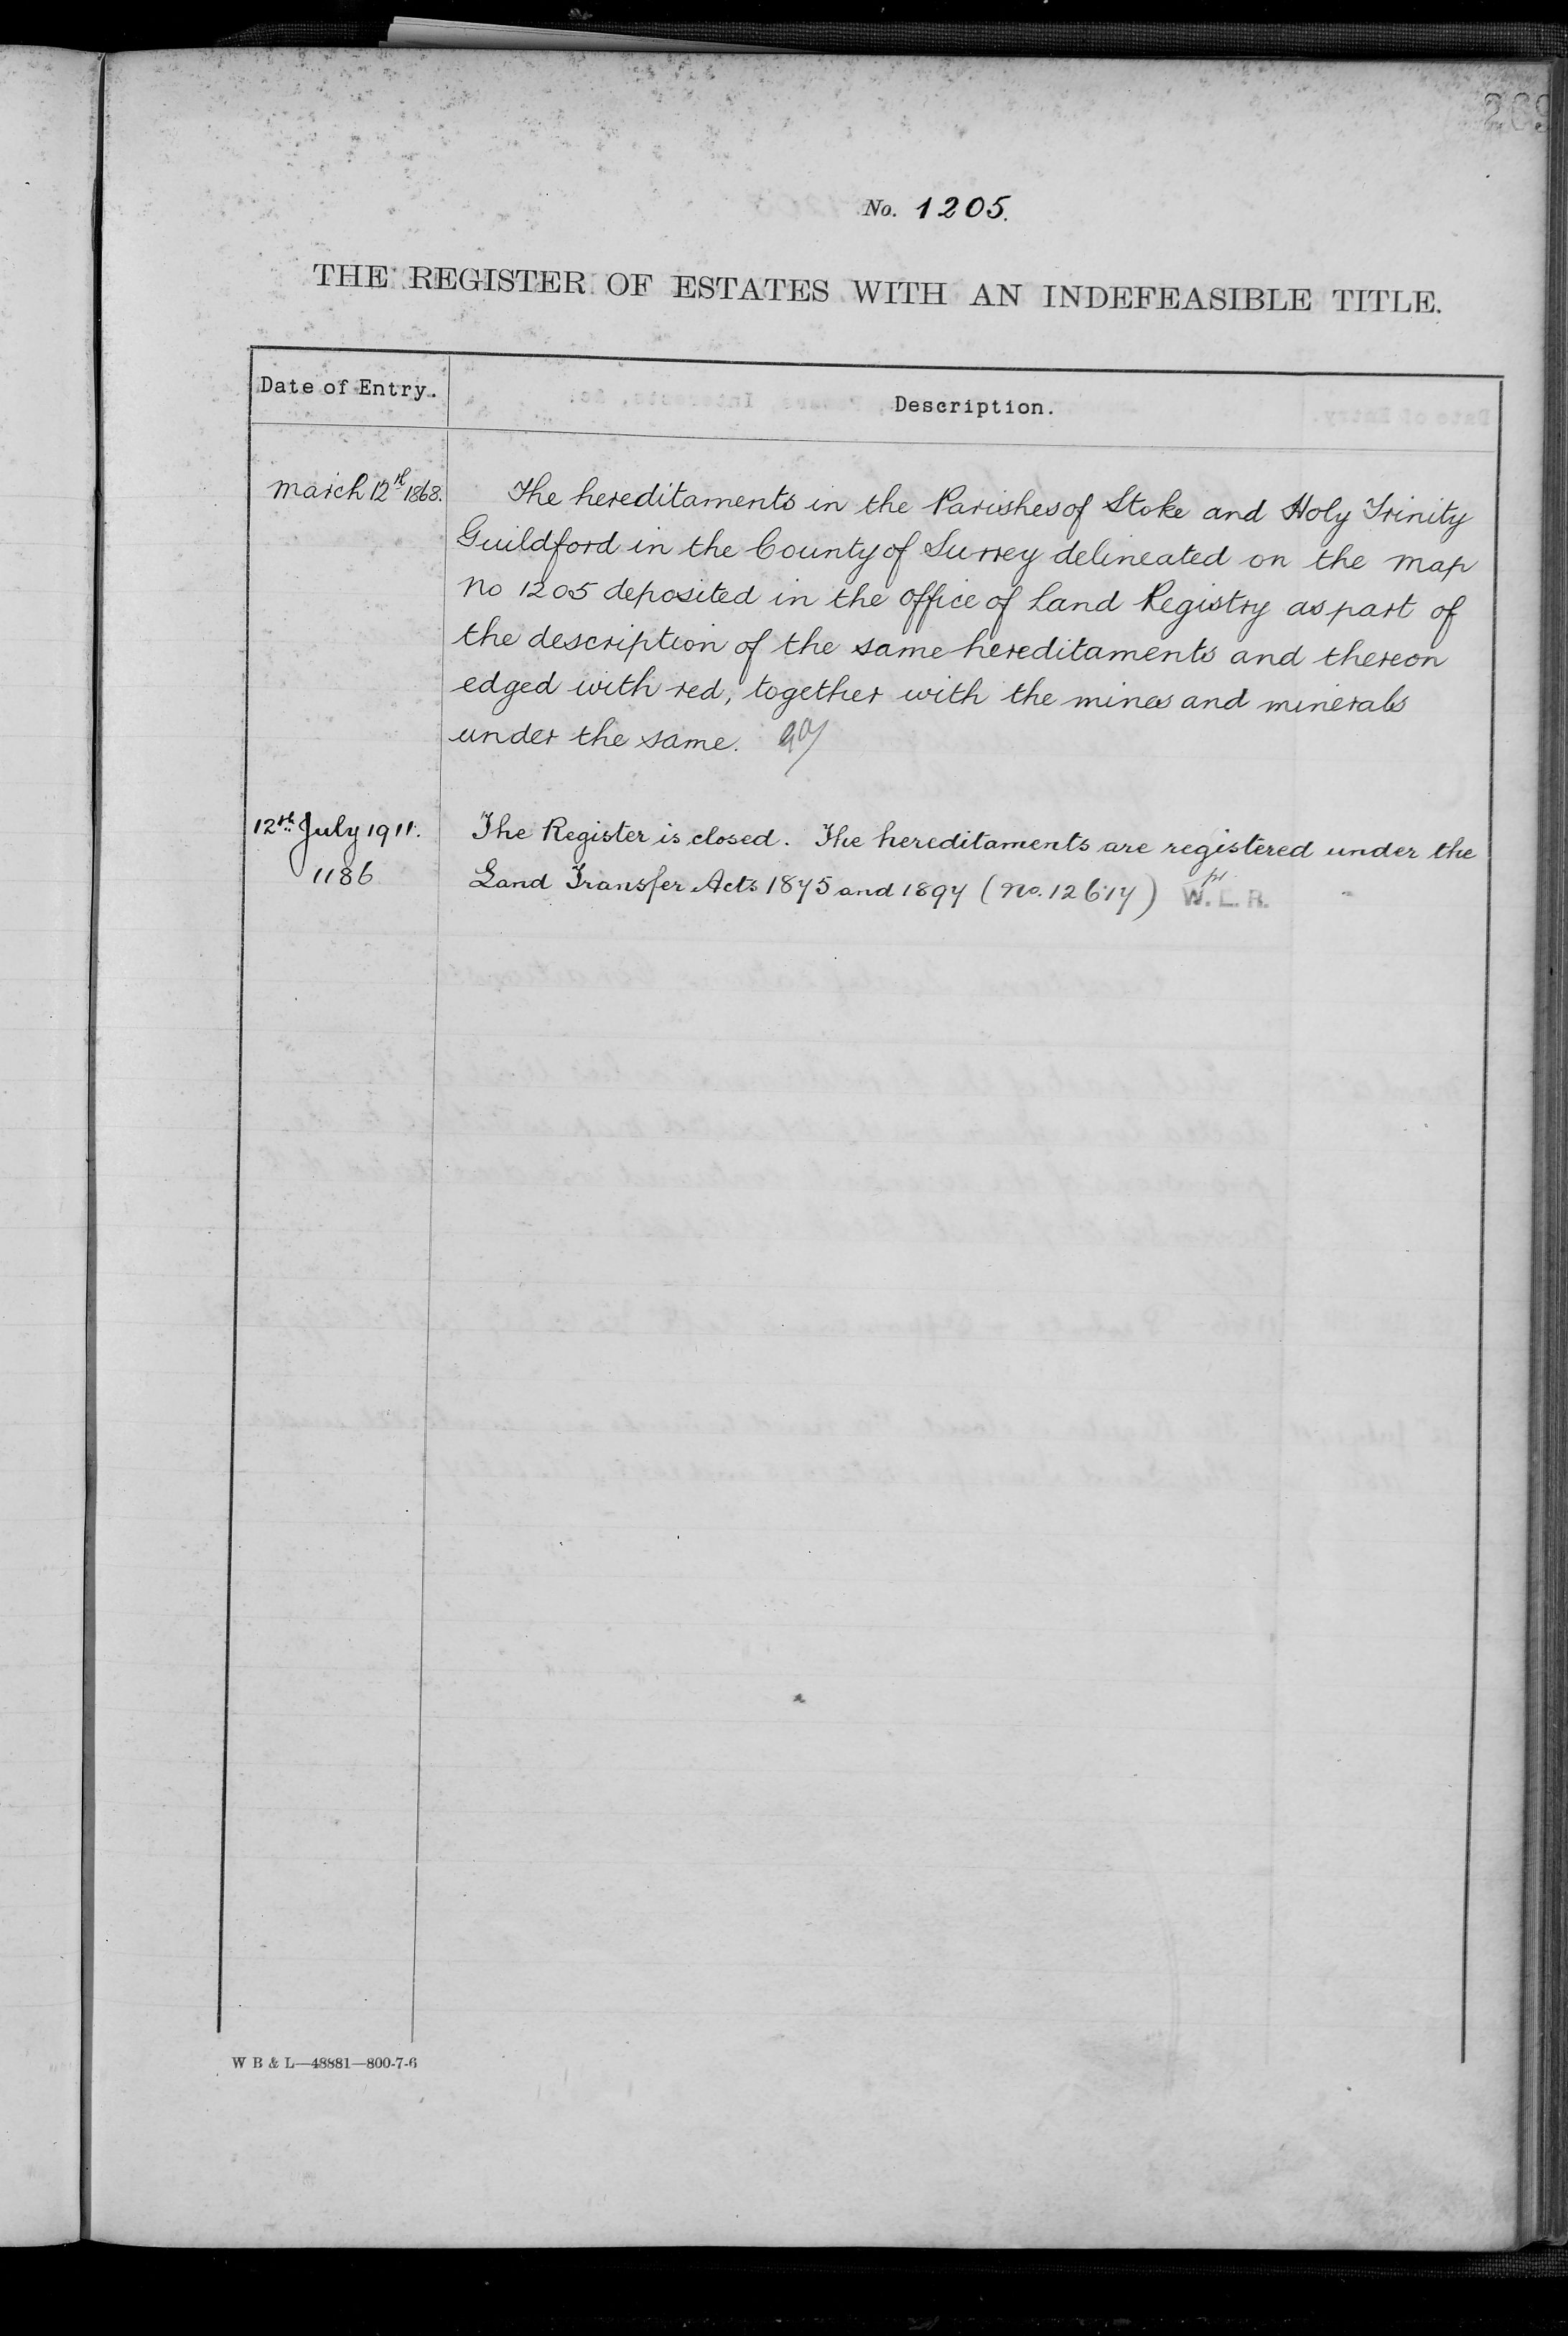 269
No. 1205.
THE REGISTER OF ESTATES WITH AN INDEFEASIBLE TITLE.
Date of Entry.
Description.
March 12th 1868.
The hereditaments in the Parishes of Stoke and Holy Trinity
Guildford in the County of Surrey delineated on the map
no 1205 deposited in the office of Land Registry as part of
the description of the same hereditaments and thereon
edged with red, together with the mines and minerals
under the same.
12th July 1911.
1186
The Register is closed. The hereditaments are registered under the
Land Transfer Acts 1875 and 1897 (No. 12617) W. L. R.
W B & L—48881—800-7-6